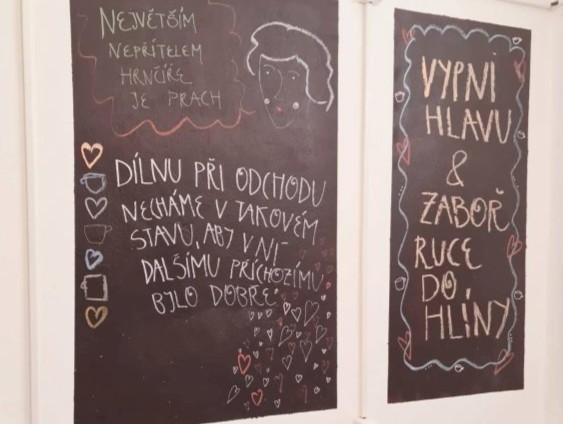 NEJVĚTŠÍM
NEPŘÍTELEM
HRNČÍŘE
JE PRACH
DÍLNU PŘI ODCHODU
NECHÁME V TAKOVÉM
STAVU, ABY V NÍ
DALŠÍMU PŘÍCHOZÍMU
BYLO DOBŘE
VYPNI
HLAVU
&
ZABOŘ
RUCE
DO
HLÍNY